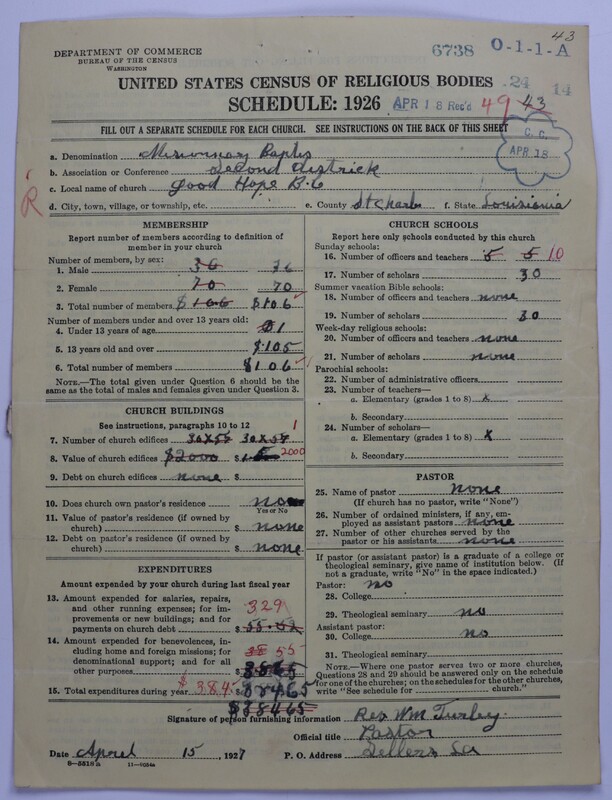 43
DEPARTMENT OF COMMERCE
BUREAU OF THE CENSUS
WASHINGTON
6738 O-1-1-A
UNITED STATES CENSUS OF RELIGIOUS BODIES 24 14
SCHEDULE: 1926 APR 18 Rec'd 49 43
FILL OUT A SEPARATE SCHEDULE FOR EACH CHURCH. SEE INSTRUCTIONS ON THE BACK OF THIS SHEET
C. C.
APR 18
a. Denomination Missionary Baptis
b. Association or Conference Second Districk
c. Local name of church Good Hope B.C
R
d. City, town, village, or township, etc. e. County St Charls f. State Louisiania
MEMBERSHIP
Report number of members according to definition of
member in your church
Number of members, by sex:
1. Male 36 36
2. Female 70 70
3. Total number of members $106 $106
Number of members under and over 13 years old:
4. Under 13 years of age 1
5. 13 years old and over $105
6. Total number of members $106
NOTE.—The total given under Question 6 should be
the same as the total of males and females given under Question 3.
CHURCH BUILDINGS
See instructions, paragraphs 10 to 12 1
7. Number of church edifices 30X57 30X57
8. Value of church edifices $2000 $ 2000
9. Debt on church edifices none $
10. Does church own pastor's residence no
Yes or No
11. Value of pastor's residence (if owned by
church) $ none
12. Debt on pastor's residence (if owned by
church) $ none
EXPENDITURES
Amount expended by your church during last fiscal year
13. Amount expended for salaries, repairs,
and other running expenses; for im-
provements or new buildings; and for
payments on church debt $ 329
14. Amount expended for benevolences,
including home and foreign missions; for
denominational support; and for all
other purposes 55
15. Total expenditures during year $384 $38465
$38465
CHURCH SCHOOLS
Report here only schools conducted by this church
Sunday schools:
16. Number of officers and teachers 5 5 10
17. Number of scholars 30
Summer vacation Bible schools:
18. Number of officers and teachers none
19. Number of scholars 30
Week-day religious schools:
20. Number of officers and teachers none
21. Number of scholars none
Parochial schools:
22. Number of administrative officers
23. Number of teachers—
a. Elementary (grades 1 to 8) x
b. Secondary
24. Number of scholars—
a. Elementary (grades 1 to 8) x
b. Secondary
PASTOR
25. Name of pastor none
(If church has no pastor, write "None")
26. Number of ordained ministers, if any, em-
ployed as assistant pastors none
27. Number of other churches served by the
pastor or his assistants none
If pastor (or assistant pastor) is a graduate of a college or
theological seminary, give name of institution below. (If
not a graduate, write "No" in the space indicated.)
Pastor: no
28. College
29. Theological seminary no
Assistant pastor:
30. College no
31. Theological seminary
NOTE.—Where one pastor serves two or more churches,
Questions 28 and 29 should be answered only on the schedule
for one of the churches; on the schedules for the other churches,
write "See schedule for church."
Signature of person furnishing information Rev Wm Turley
Official title Pastor
Date April 15, 1927 P. O. Address Sellers La
8-5518a 11-9034a